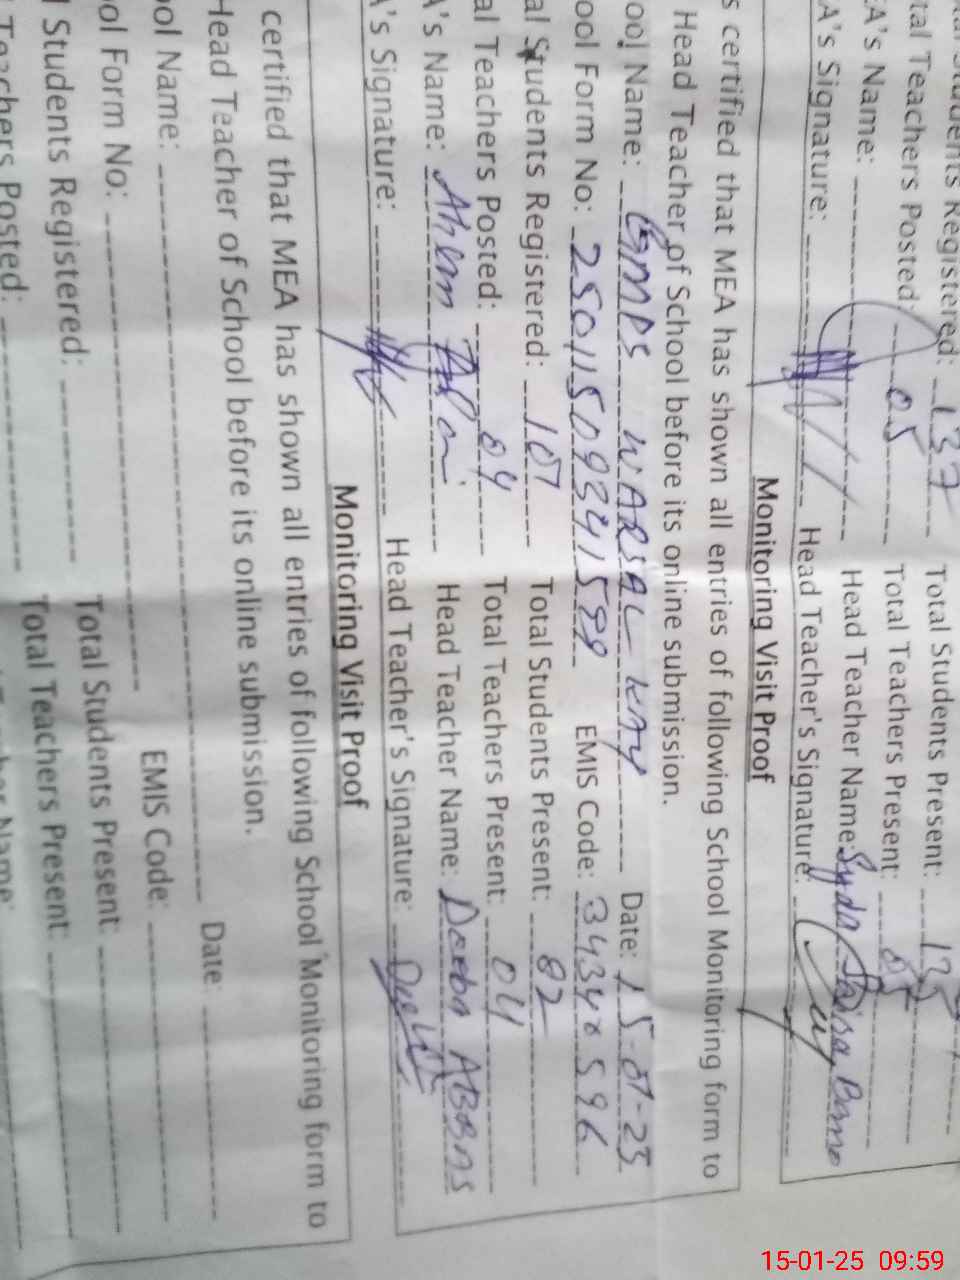 Students Registered: 137 Total Students Present: 135
tal Teachers Posted: 05 Total Teachers Present: 05
EA's Name: Head Teacher Name: Syda
A's Signature: Head Teacher's Signature:
Monitoring Visit Proof
s certified that MEA has shown all entries of following School Monitoring form to
Head Teacher of School before its online submission.
ool Name: GMPS WARSAL WAY Date: 15-01-25
ool Form No: 25011509341599 EMIS Code: 34340596
al Students Registered: 107 Total Students Present: 82
al Teachers Posted: 04 Total Teachers Present: 04
A's Name: Head Teacher Name: Deeba ABBAS
A's Signature: Head Teacher's Signature:
Monitoring Visit Proof
certified that MEA has shown all entries of following School Monitoring form to
Head Teacher of School before its online submission.
ool Name: Date:
ool Form No: EMIS Code:
l Students Registered: Total Students Present:
Teachers Posted: Total Teachers Present:
Name:
15-01-25 09:59